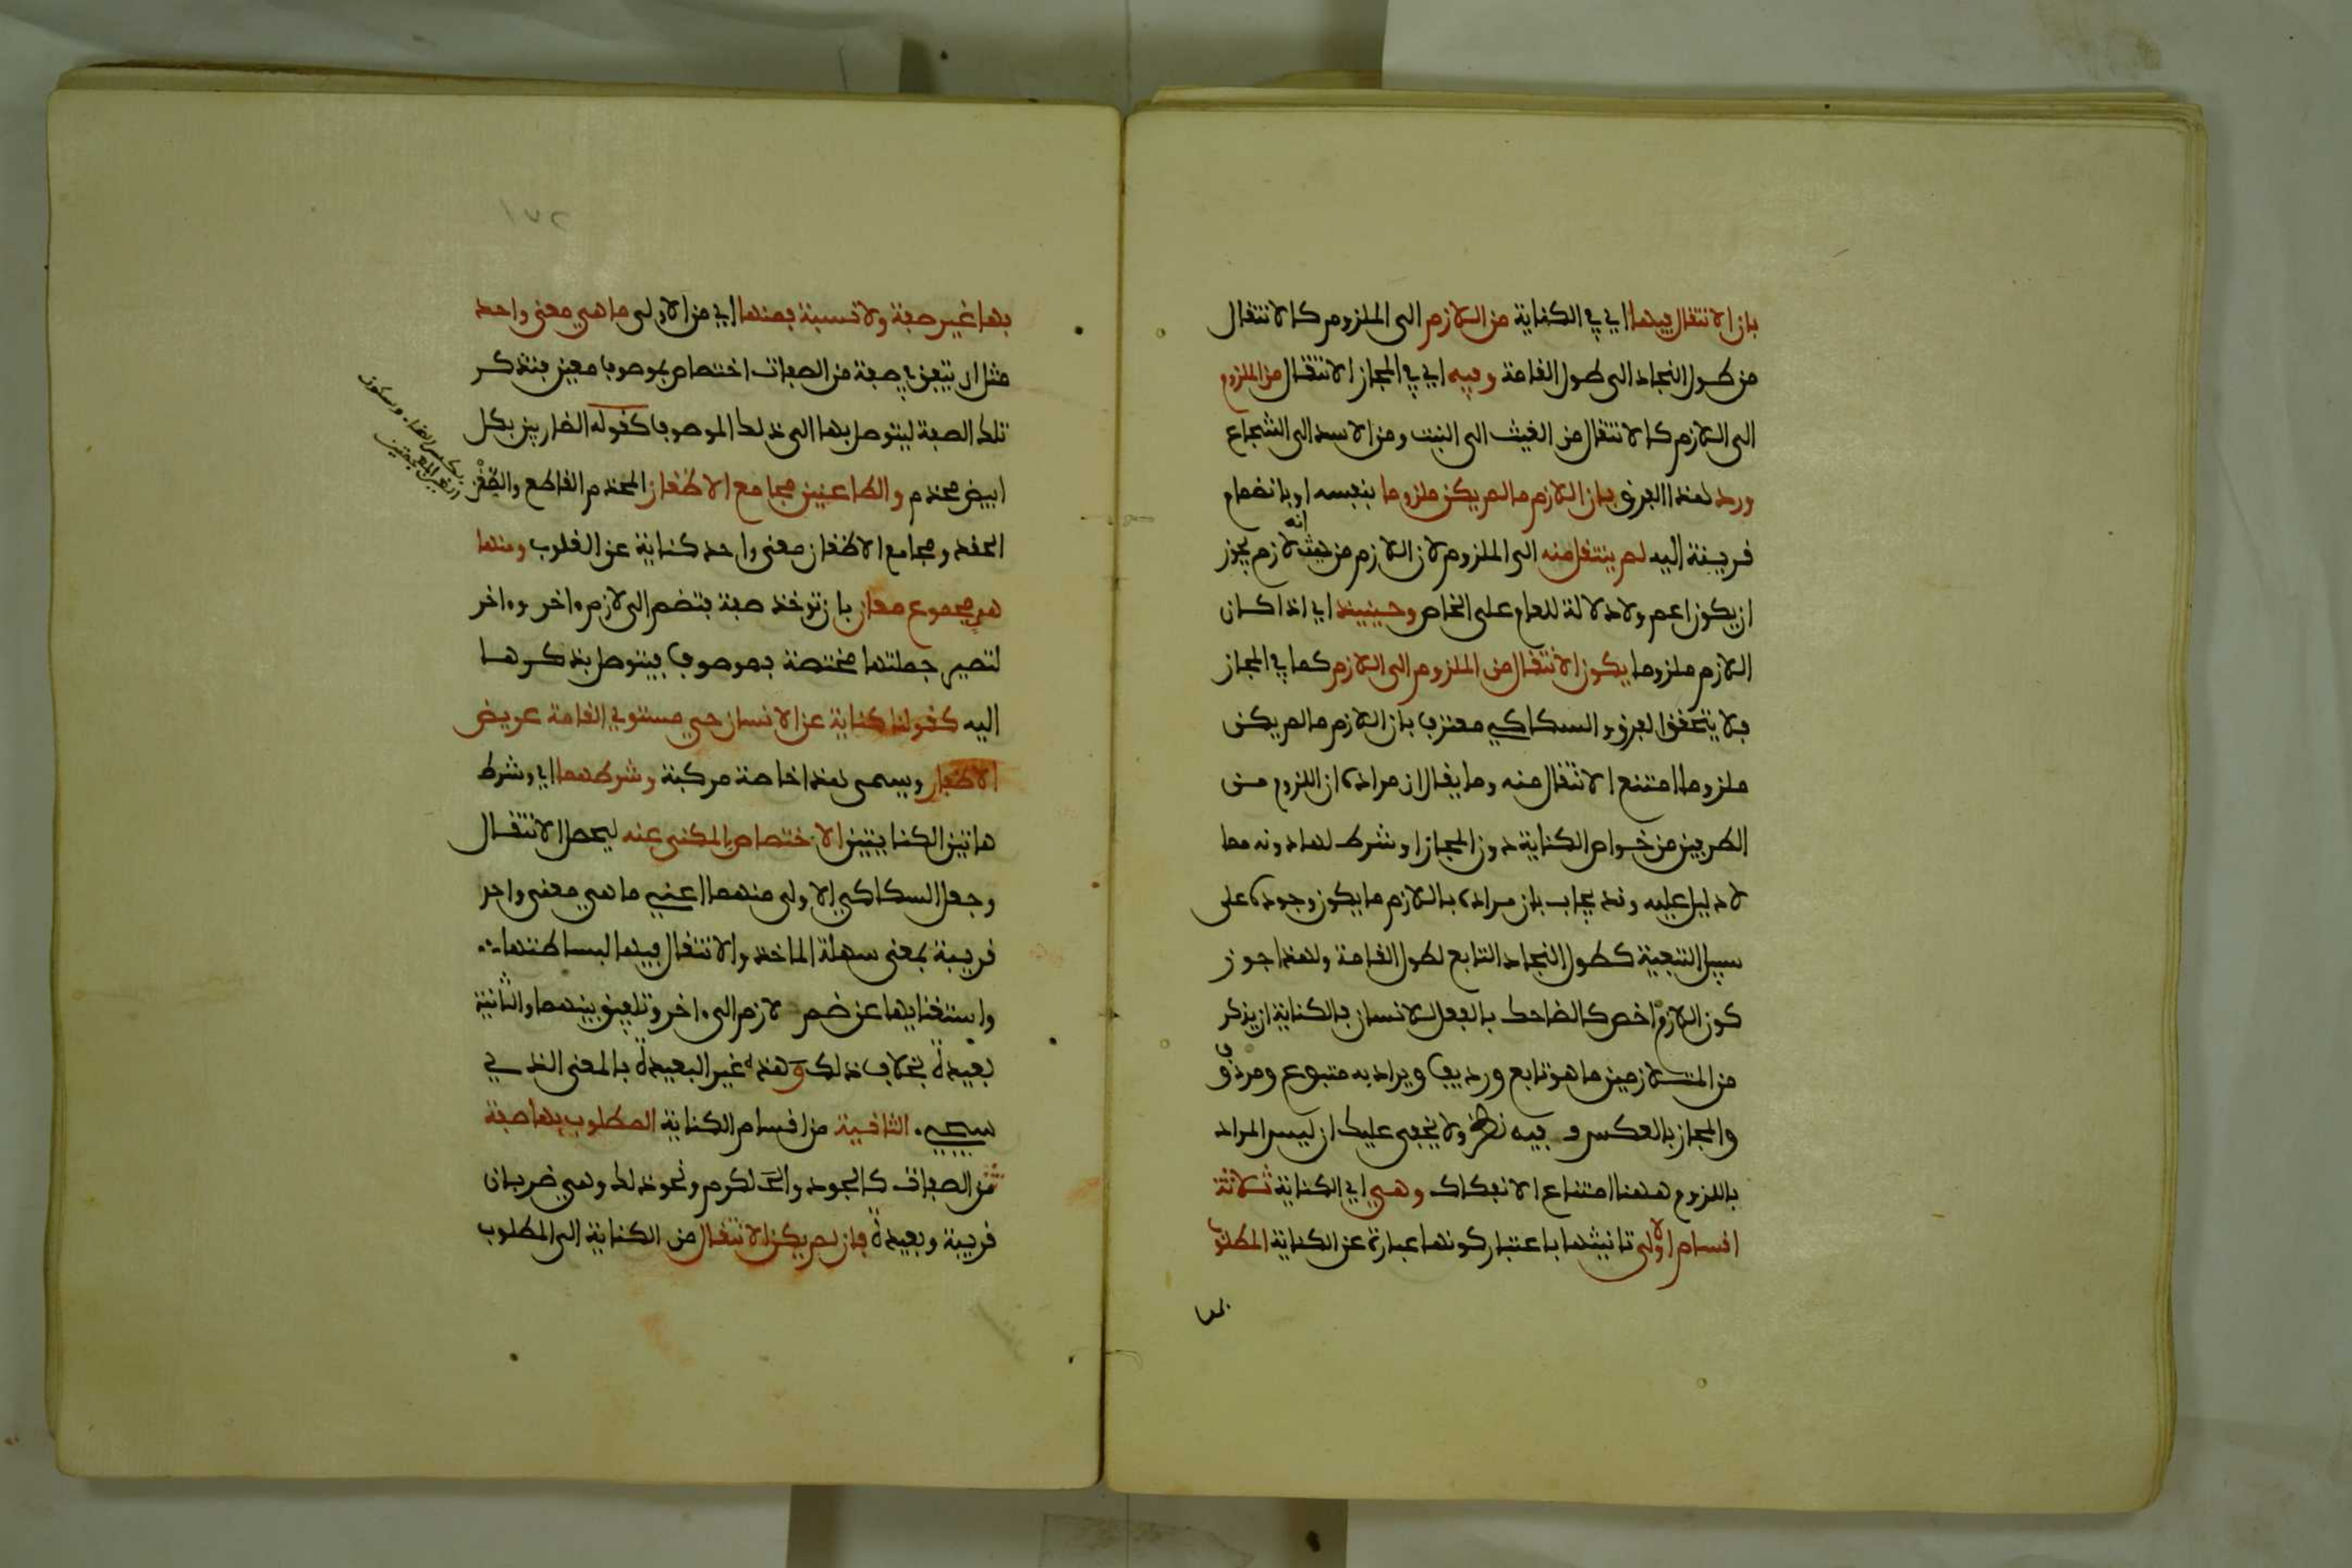 بان الانتقال فيها اي في الكناية من اللازم الى الملزوم كالانتقال
من طول النجاد الى طول القامة وفيه اي في المجاز الانتقال من الملزوم
الى اللازم كالانتقال من الغيث الى النبت ومن الاسد الى الشجاع
ورد هذا الفرق بان اللازم ما لم يكن ملزوما بنفسه او بانضمام
قرينة اليه لم ينتقل منه الى الملزوم لان اللازم من حيث انه لازم يجوز
ان يكون اعم ولا دلالة للعام على الخاص وحينيذ اي اذا كان
اللازم ملزوما يكون الانتقال من الملزوم الى اللازم كما في المجاز
فلا يتحقق الفرق والسكاكي معترف بان اللازم ما لم يكن
ملزوما امتنع الانتقال منه وما يقال ان مراده ان اللزوم من
الطرفين من خواص الكناية دون المجاز او شرط لها دونه مما
لا دليل عليه وقد يجاب بان مراده باللازم ما يكون وجوده على
سبيل التبعية كطول النجاد التابع لطول القامة ولهذا جوز
كون اللازم اخص كالضاحك بالفعل للانسان فالكناية ان يذكر
من المتلازمين ما هو تابع ورديف ويراد به متبوع ومردوف
والمجاز بالعكس وفيه نظر ولا يخفى عليك ان ليس المراد
باللزوم ههنا امتناع الانفكاك وهي اي الكناية ثلاثة
اقسام الاولى تانيثها باعتبار كونها عبارة عن الكناية المطلوب
بها
١٧٢
بها غير صفة ولا نسبة فمنها اي من الاولى ما هي معنى واحد
مثل ان يتفق في صفة من الصفات اختصاص بموصوف معين فتذكر
تلك الصفة ليتوصل بها الى ذلك الموصوف كقوله الضاربين بكل
ابيض مخذم والطاعنين مجامع الاضغان المخذم القاطع والضغن
الحقد ومجامع الاضغان معنى واحد كناية عن القلوب ومنها
هي مجموع معان بان توخذ صفة فتضم الى لازم ءاخر وءاخر
لتصير جملتها مختصة بموصوف فيتوصل بذكرها
اليه كقولنا كناية عن الانسان حي مستوي القامة عريض
الاظفار ويسمى هذا خاصة مركبة وشرطهما اي وشرط
هاتين الكنايتين الاختصاص بالمكنى عنه ليحصل الانتقال
وجعل السكاكي الاولى منهما اعني ما هي معنى واحد
قريبة بمعنى سهلة الماخذ والانتقال فيها لبساطتها
واستغنايها عن ضم لازم الى ءاخر وتلفيق بينهما والثانية
بعيدة بخلاف ذلك وهذه غير البعيدة بالمعنى الذي
سيجيء الثانية من اقسام الكناية المطلوب بها صفة
من الصفات كالجود والكرم ونحو ذلك وهي ضربان
قريبة وبعيدة فان لم يكن الانتقال من الكناية الى المطلوب
بكسر الضاد وسكون
الغين المعجمتين